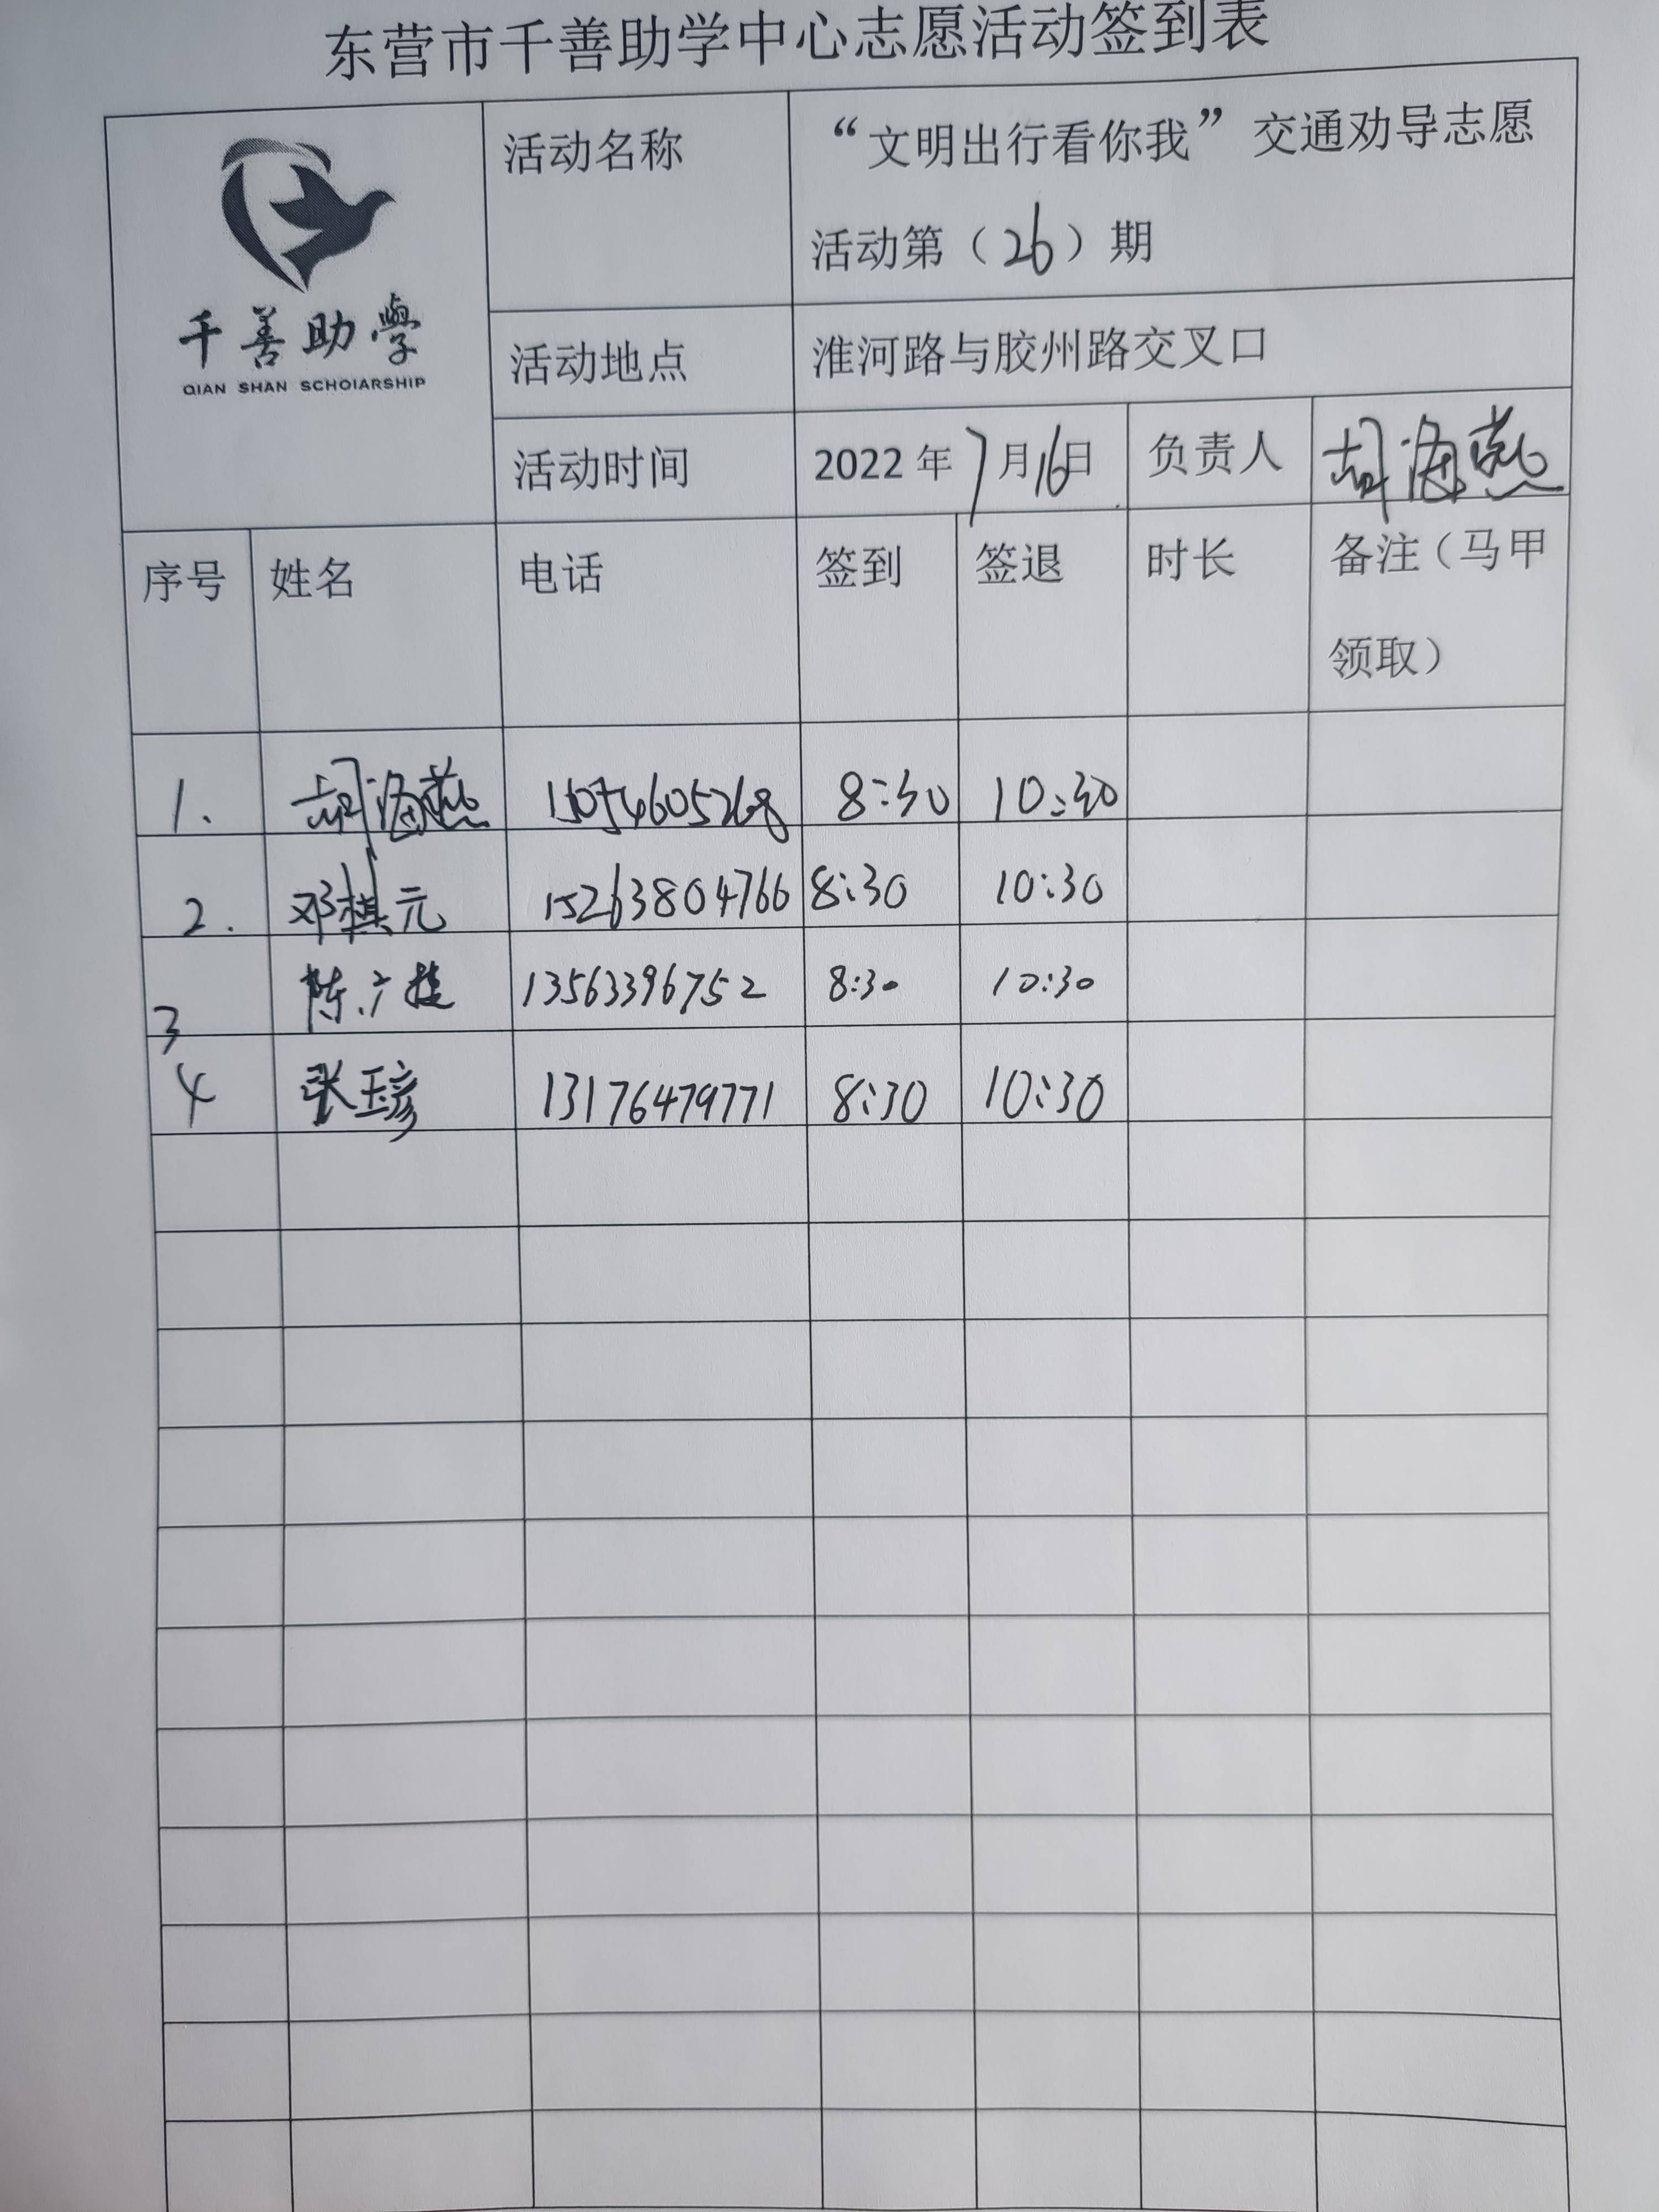 东营市千善助学中心志愿活动签到表
千善助學
QIAN SHAN SCHOIARSHIP
活动名称 “文明出行看你我”交通劝导志愿
活动第（26）期
活动地点 淮河路与胶州路交叉口
活动时间 2022年7月16日 负责人 胡海燕
序号 姓名 电话 签到 签退 时长 备注（马甲
领取）
1. 胡海燕 15054605268 8:30 10:30
2. 邓棋元 15263804766 8:30 10:30
3 陈广 13563396752 8:30 10:30
4 张玉彦 13176479771 8:30 10:30